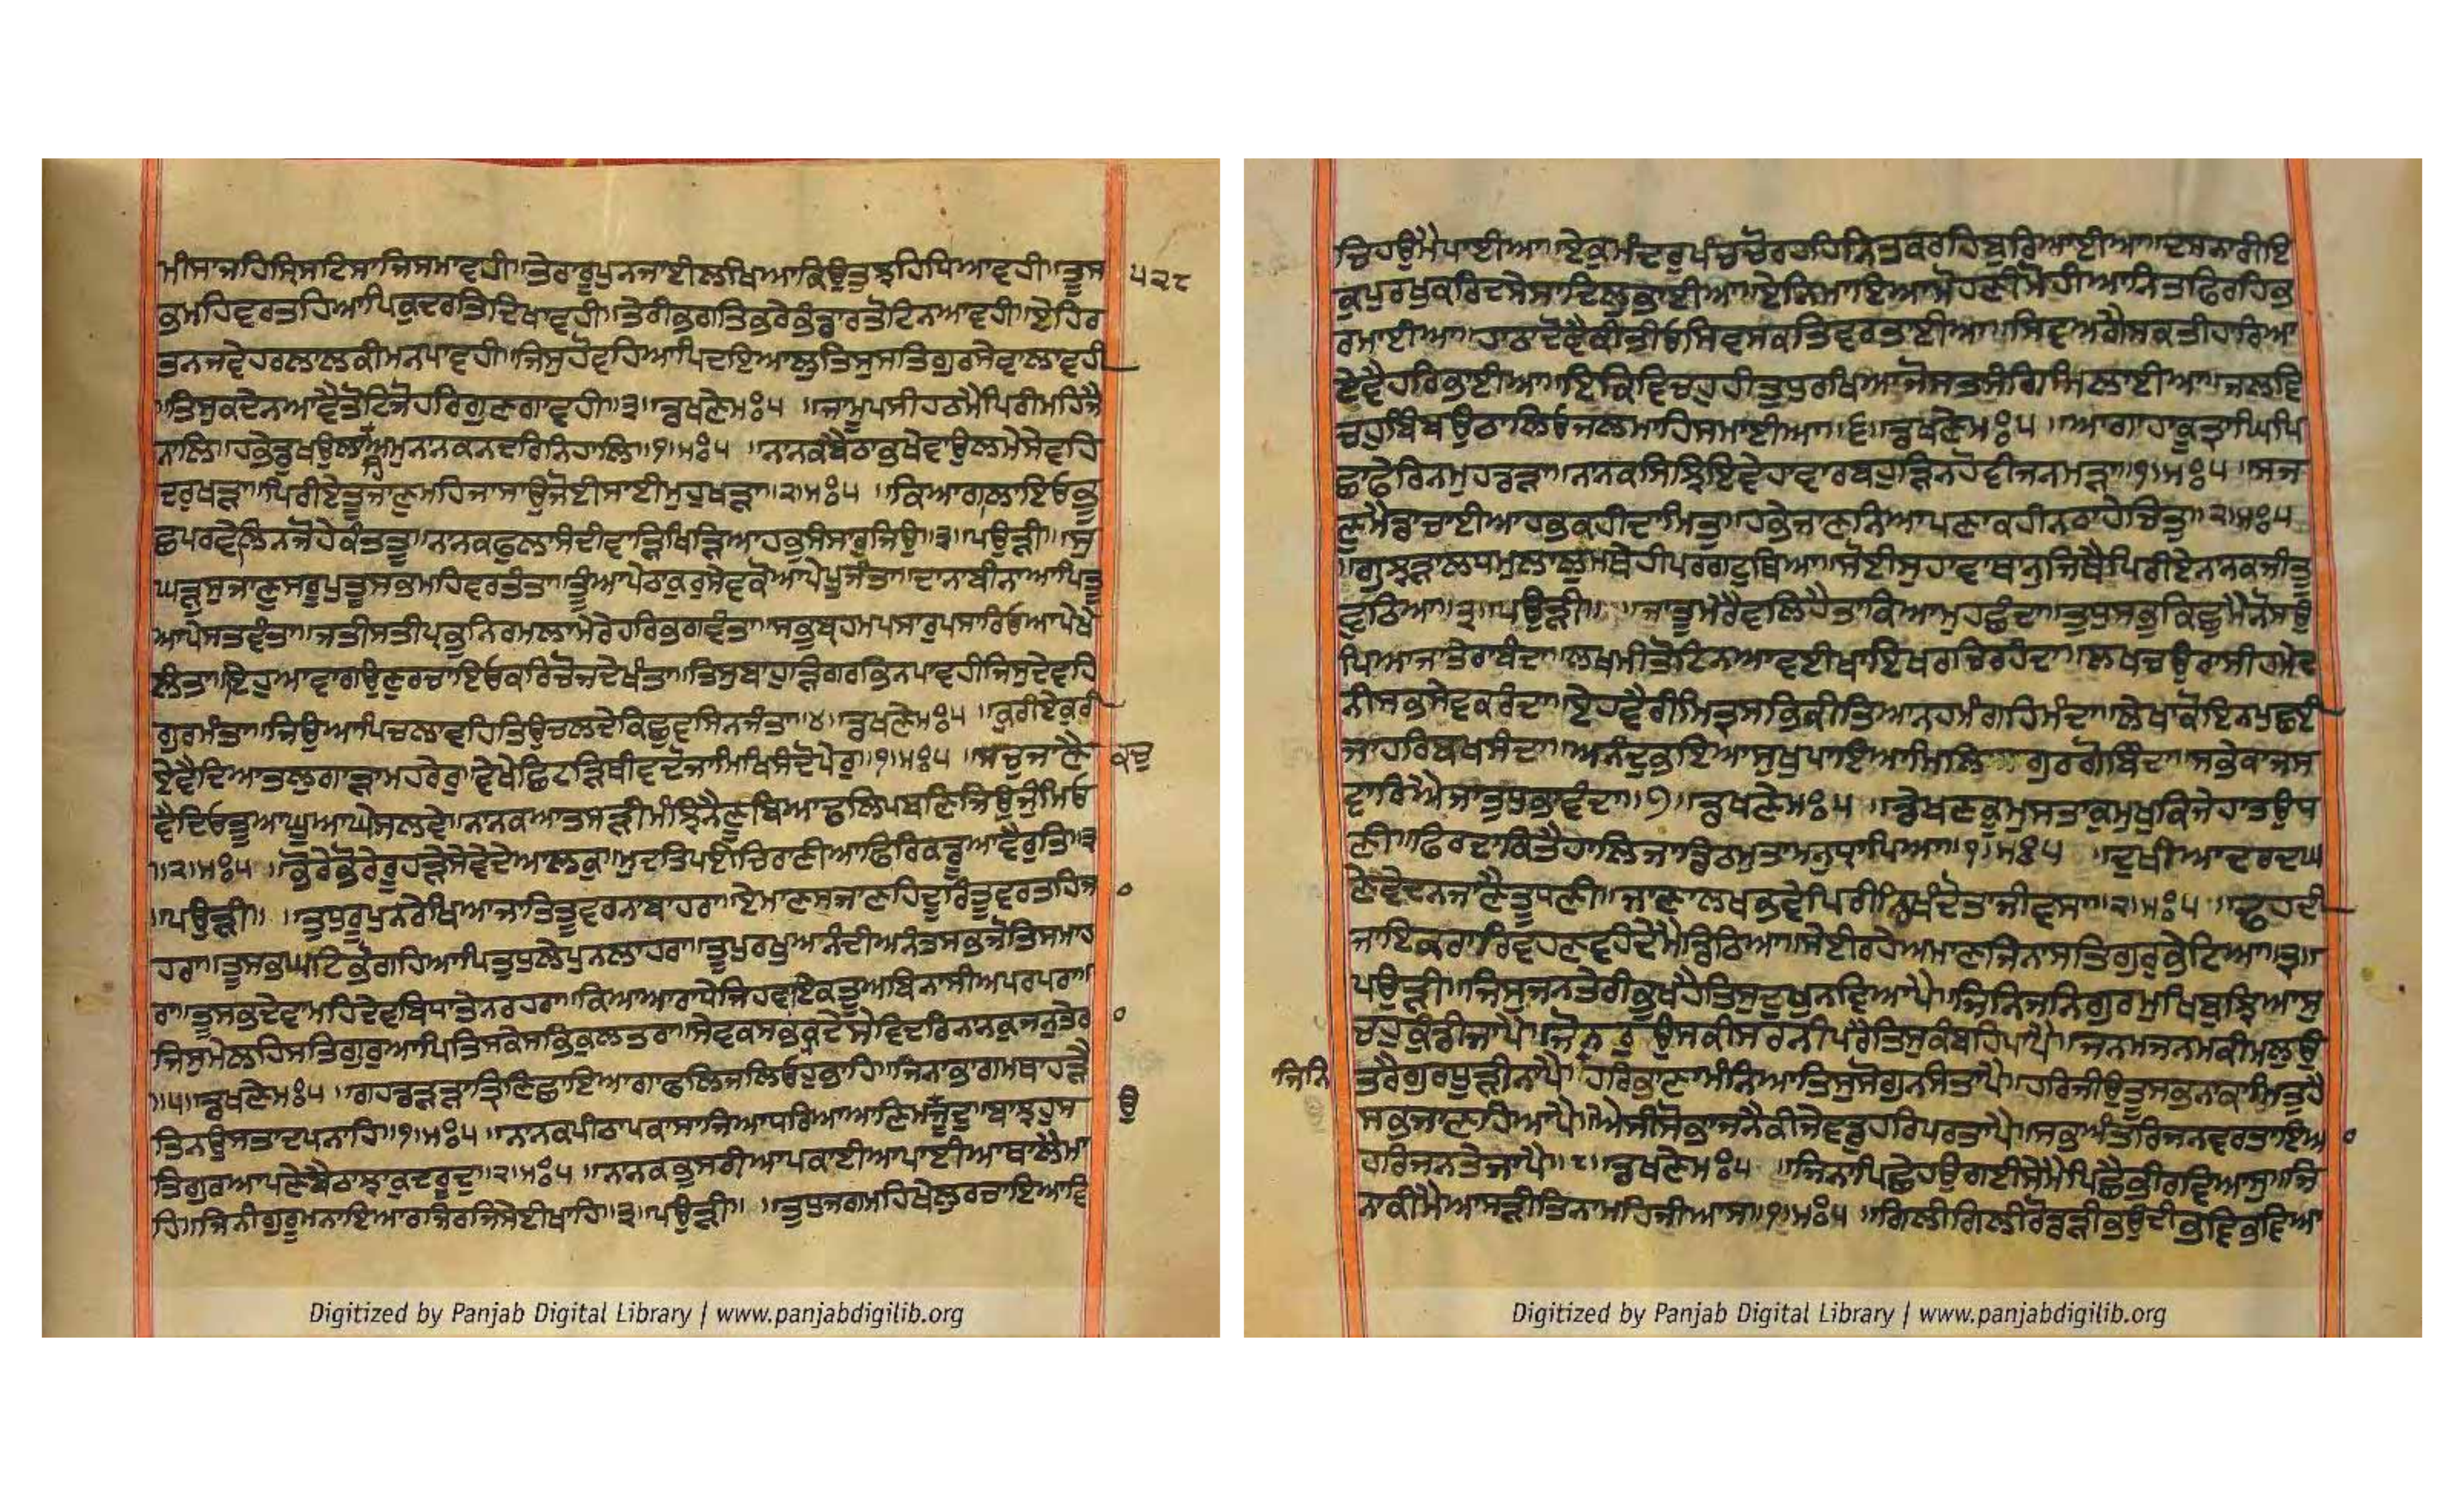 ਮੀਸਾਜਹਿਸ੍ਰਿਸਟਿਸਾਜਿਸਮਾਵਹੀ॥ਤੇਰਾਰੂਪੁਨਜਾਈਲਖਿਆਕਿਉਤੁਝਹਿਧਿਆਵਹੀ॥ਤੂਸ ੫੨੮
ਭਮਹਿਵਰਤਹਿਆਪਿਕੁਦਰਤਿਦਿਖਾਵਹੀ॥ਤੇਰੀਭਗਤਿਭਰੇਭੰਡਾਰਤੋਟਿਨਆਵਹੀ॥ਏਹਿਰ
ਤਨਜਵੇਹਰਲਾਲਕੀਮਨਪਾਵਹੀ॥ਜਿਸੁਹੋਵਹਿਆਪਿਦਇਆਲੁਤਿਸੁਸਤਿਗੁਰਸੇਵਾਲਾਵਹੀ
॥ਤਿਸੁਕਦੇਨਆਵੈਤੋਟਿਜੋਹਰਿਗੁਣਗਾਵਹੀ॥੩॥ਡਖਣੇਮਃ੫ ॥ਜਾਮੂਪਸੀਹਠਮੈਪਿਰੀਮਹਿਜੈ
ਨਾਲਿ॥ਹਭੇਡੁਖਉਲਾਹਿਅਮੁਨਾਨਕਨਦਰਿਨਿਹਾਲਿ॥੧॥ਮਃ੫ ॥ਨਾਨਕਬੈਠਾਭਖੇਵਾਉਲਮੇਸੇਵਹਿ
ਦਰੁਖੜਾ॥ਪਿਰੀਏਤੂਜਾਣੁਮਹਿਜਾਸਾਉਜੋਈਸਾਈਮੁਹੁਖੜਾ॥੨॥ਮਃ੫ ॥ਕਿਆਗਾਲਾਇਓਭੂ
ਛਪਰਵੇਲਿਨਜੋਹੇਕੰਤਤੂ॥ਨਾਨਕਫੁਲਾਸੰਦੀਵਾੜਿਖਿੜਿਆਹਭੁਸੰਸਾਰੁਜਿਉ॥੩॥ਪਉੜੀ॥ ॥ਸੁ
ਘੜੁਸੁਜਾਣੁਸਰੂਪੁਤੂਸਭਮਹਿਵਰਤੰਤਾ॥ਤੂੰਆਪੇਠਾਕੁਰੁਸੇਵਕੋਆਪੇਪੂਜੰਤਾ॥ਦਾਨਾਬੀਨਾਆਪਿਤੂ
ਆਪੇਸਤਵੰਤਾ॥ਜਤੀਸਤੀਪ੍ਰਭੁਨਿਰਮਲਾਮੇਰੇਹਰਿਭਗਵੰਤਾ॥ਸਭੁਬ੍ਰਹਮਪਸਾਰੁਪਸਾਰਿਓਆਪੇਖੇ
ਲੰਤਾ॥ਇਹੁਆਵਾਗਉਣੁਰਚਾਇਓਕਰਿਚੋਜਦੇਖੰਤਾ॥ਤਿਸੁਬਾਹੁੜਿਗਰਭਿਨਪਾਵਹੀਜਿਸੁਦੇਵਹਿ
ਗੁਰਮੰਤਾ॥ਜਿਉਆਪਿਚਲਾਵਹਿਤਿਉਚਲਦੇਕਿਛੁਵਸਿਨਜੰਤਾ॥੪॥ਡਖਣੇਮਃ੫ ॥ਕੁਰੀਏਕੁਰੀ
ਏਵੈਦਿਆਤਲੁਗਾੜਾਮਹਰੇਰੁ॥ਵੇਖੇਛਿਟੜਿਥੀਵਦੋਜਾਮਿਖਿਸੰਦੋਪੇਰੁ॥੧॥ਮਃ੫ ॥ਸਚੁਜਾਣੈ ਕਚੁ
ਵੈਦਿਓਤੂਆਘੂਆਘੇਸਲਵੇ॥ਨਾਨਕਆਤਸੜੀਮੰਝਿਨੈਣੂਬਿਆਢਲਿਪਬਣਿਜਿਉਜੁੰਮਿਓ
॥੨॥ਮਃ੫ ॥ਭੋਰੇਭੋਰੇਰੂਹੜੇਸੇਵੇਦੇਆਲਕੁ॥ਮੁਦਤਿਪਈਚਿਰਾਣੀਆਫਿਰਿਕਡੂਆਵੈਰੁਤਿ॥੩
॥ਪਉੜੀ॥ ॥ਤੁਧੁਰੂਪੁਨਰੇਖਿਆਜਾਤਿਤੂਵਰਨਾਬਾਹਰਾ॥ਏਮਾਣਸਜਾਣਹਿਦੂਰਿਤੂਵਰਤਹਿਜ
ਹਰਾ॥ਤੂਸਭਘਟਿਭੋਗਹਿਆਪਿਤੁਧੁਲੇਪੁਨਲਾਹਰਾ॥ਤੂਪੁਰਖੁਅਨੰਦੀਅਨੰਤਸਭਜੋਤਿਸਮਾਹ
ਰਾ॥ਤੂਸਭਦੇਵਾਮਹਿਦੇਵਬਿਧਾਤੇਨਰਹਰਾ॥ਕਿਆਆਰਾਧੇਜਿਹਵਾਇਕਤੂਅਬਿਨਾਸੀਅਪਰਪਰਾ॥
ਜਿਸੁਮੇਲਹਿਸਤਿਗੁਰੁਆਪਿਤਿਸਕੇਸਭਿਕੁਲਤਰਾ॥ਸੇਵਕਸਭਿਕਰਦੇਸੇਵਦਰਿਨਾਨਕੁਜਨੁਤੇਰ
॥੫॥ਡਖਣੇਮਃ੫ ॥ਗਹਡੜੜਾਤ੍ਰਿਣਿਛਾਇਆਗਾਫਲਿਜਲਿਓਹੁਭਾਹਿ॥ਜਿਨਾਭਾਗਮਥਾਹੜੈ
ਤਿਨਉਸਤਾਦਪਨਾਹਿ॥੧॥ਮਃ੫ ॥ਨਾਨਕਪੀਠਾਪਕਾਸਾਜਿਆਧਰਿਆਆਣਿਮਉਜੂਦੁ॥ਬਾਝਹੁਸ ਉ
ਤਿਗੁਰਆਪਣੇਬੈਠਾਝਾਕੁਦਰੂਦ॥੨॥ਮਃ੫ ॥ਨਾਨਕਭੁਸਰੀਆਪਕਾਈਆਪਾਈਆਥਾਲੈਮਾ
ਹਿ॥ਜਿਨੀਗੁਰੂਮਨਾਇਆਰਜਿਰਜਿਸੇਈਖਾਹਿ॥੩॥ਪਉੜੀ॥ ॥ਤੁਧੁਜਗਮਹਿਖੇਲੁਰਚਾਇਆਵਿ
Digitized by Panjab Digital Library | www.panjabdigilib.org
ਚਿਹਉਮੈਪਾਈਆ॥ਏਕੁਮੰਦਰੁਪੰਚਚੋਰਹਹਿਨਿਤਕਰਹਿਬੁਰਿਆਈਆ॥ਦਸਨਾਰੀਇ
ਕੁਪੁਰਖੁਕਰਿਦਸੇਸਾਦਿਲੋਭਾਈਆ॥ਏਨਿਮਾਇਆਮੋਹਣੀਮੋਹੀਆਨਿਤਫਿਰਹਿਭ
ਰਮਾਈਆ॥ਹਾਠਾਦੋਵੈਕੀਤੀਓਸਿਵਸਕਤਿਵਰਤਾਈਆ॥ਸਿਵਅਗੈਸਕਤੀਹਾਰਿਆ
ਏਵੈਹਰਿਭਾਈਆ॥ਇਕਿਵਿਚਹੁਹੀਤੁਧੁਰਖਿਆਜੋਸਤਸੰਗਿਮਿਲਾਈਆ॥ਜਲਵਿ
ਚਹੁਬਿੰਬੁਉਠਾਲਿਓਜਲਮਾਹਿਸਮਾਈਆ॥੬॥ਡਖਣੇਮਃ੫ ॥ਆਗਾਹਾਕੂਤ੍ਰਾਘਿਪਿ
ਛਾਫੇਰਿਨਮੁਹਡੜਾ॥ਨਾਨਕਸਿਝਿਇਵੇਹਾਵਾਰਬਹੁੜਿਨਹੋਵੀਜਨਮੜਾ॥੧॥ਮਃ੫ ॥ਸਜ
ਣੁਮੈਡਾਚਾਈਆਹਭਕਹੀਦਾਮਿਤੁ॥ਹਭੇਜਾਣਨਿਆਪਣਾਕਹੀਨਠਾਹੇਚਿਤੁ॥੨॥ਮਃ੫
॥ਗੁਝੜਾਲਧਮੁਲਾਲੁਮਥੈਹੀਪਰਗਟੁਥਿਆ॥ਸੋਈਸੁਹਾਵਾਥਾਨੁਜਿਥੈਪਿਰੀਏਨਾਨਕਜੀਤੂ
ਵੁਠਿਆ॥੩॥ਪਉੜੀ॥ ॥ਜਾਤੂਮੇਰੈਵਲਿਹੈਤਾਕਿਆਮੁਹਛੰਦਾ॥ਤੁਧੁਸਭੁਕਿਛੁਮੈਨੋਸਉ
ਪਿਆਜਾਤੇਰਾਬੰਦਾ॥ਲਖਮੀਤੋਟਿਨਆਵਈਖਾਇਖਰਚਿਰਹੰਦਾ॥ਲਖਚਉਰਾਸੀਹਮੇਦ
ਨੀਸਭਸੇਵਕਰੰਦਾ॥ਏਹਵੈਰੀਮਿਤ੍ਰਸਭਿਕੀਤਿਆਨਹਮੰਗਹਿਮੰਦਾ॥ਲੇਖਾਕੋਇਨਪੁਛਈ
ਜਾਹਰਿਬਖਸੰਦਾ॥ਅਨੰਦੁਭਇਆਸੁਖੁਪਾਇਆਮਿਲਿ ਗੁਰਗੋਬਿੰਦਾ॥ਸਭੇਕਾਜਸ
ਵਾਰਿਐਜਾਤੁਧੁਭਾਵੰਦਾ॥੭॥ਡਖਣੇਮਃ੫ ॥ਡੇਖਣਕੂਮੁਸਤਾਕੁਮੁਖੁਕਿਜੇਹਾਤਉਧ
ਣੀ॥ਫਿਰਦਾਕਿਤੈਹਾਲਿਜਾਡਿਠਮੁਤਾਮਨੁਧ੍ਰਾਪਿਆ॥੧॥ਮਃ੫ ॥ਦੁਖੀਆਦਰਦਘ
ਣੇਵੇਦਨਜਾਣੈਤੂਧਣੀ॥ਜਾਣਾਲਖਭਵੇਪਿਰੀਡਿਖੰਦੋਤਾਜੀਵਸਾ॥੨॥ਮਃ੫ ॥ਢਹਦੀ
ਜਾਇਕਰਾਰਿਵਹਣਿਵਹੰਦੇਮੈਡਿਠਿਆ॥ਸੇਈਰਹੇਅਮਾਣਜਿਨਾਸਤਿਗੁਰੁਭੇਟਿਆ॥੩॥
ਪਉੜੀ॥ਜਿਸੁਜਨਤੇਰੀਭੁਖਹੈਤਿਸੁਦੁਖੁਨਵਿਆਪੈ॥ਜਿਨਿਜਨਿਗੁਰਮੁਖਿਬੁਝਿਆਸੁ
ਚਹੁਕੁੰਡੀਜਾਪੈ॥ਜੋਨਰੁਉਸਕੀਸਰਨੀਪਰੈਤਿਸੁਕੰਬਹਿਪਾਪੈ॥ਜਨਮਜਨਮਕੀਮਲੁਉ
ਜਿਨਿ ਤਰੈਗੁਰਧੂੜੀਨਾਪੈ॥ਹਰਿਭਾਣਾਮੰਨਿਆਤਿਸੁਸੋਗੁਨਸੰਤਾਪੈ॥ਹਰਿਜੀਉਤੂਸਭਨਾਕਾਮਿਤੁਹੈ
ਸਭਜਾਣਹਿਆਪੈ॥ਐਸੀਸੋਭਾਜਨੈਕੀਜੇਵਡੁਹਰਿਪਰਤਾਪੈ॥ਸਭਅੰਤਰਿਜਨਵਰਤਾਇਆ
ਹਰਿਜਨਤੇਜਾਪੈ॥੮॥ਡਖਣੇਮਃ੫ ॥ਜਿਨਾਪਿਛੈਹਉਗਈਸੇਮੈਪਿਛੈਭੀਰਵਿਆਸੁ॥ਜਿ
ਨਾਕੀਮੈਆਸੜੀਤਿਨਾਮਹਿਜੀਆਸ॥੧॥ਮਃ੫ ॥ਗਿਲੀਗਿਲੀਰੋਡੜੀਭਉਦੀਭਵਿਭਵਿਆ
Digitized by Panjab Digital Library | www.panjabdigilib.org